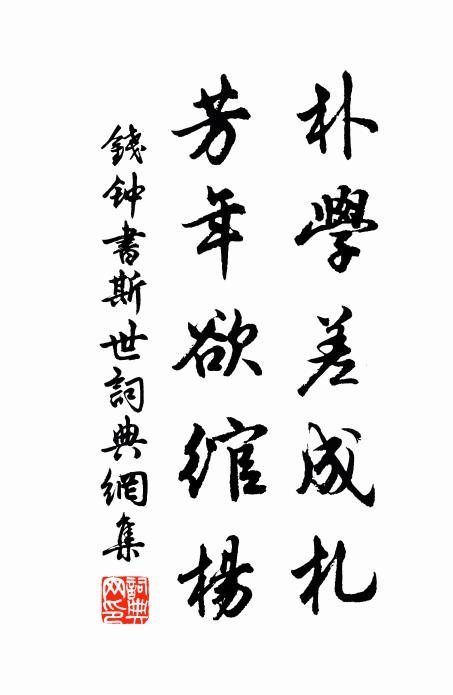 朴學差成札
芳年欲綰楊
錢钟書斯世詞典網集
詞典网印